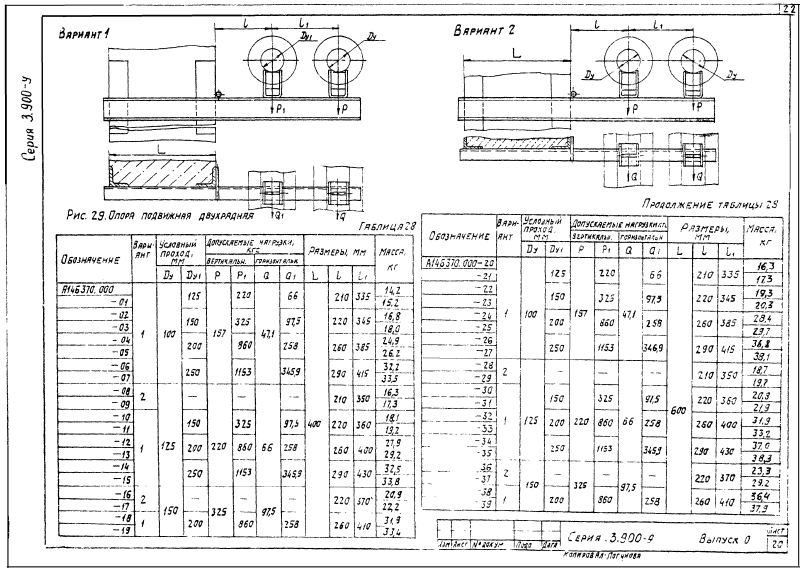 22
Вариант 1
Вариант 2
Серия 3.900-9
l l1
Dу1 Dу
P1 P
L
Q1 Q
L l l1
Dу Dу
P P
Q Q
Рис. 29. Опора подвижная двухрядная
Таблица 28
Обозначение Вариант Условный проход, мм Допускаемые нагрузки, кгс Размеры, мм Масса, кг
вертикальн. горизонтальн.
Dу Dу1 P P1 Q Q1 L l l1
А14Б370.000 1 100 125 157 220 47,1 66 400 210 335 14,2
-01 15,2
-02 150 325 97,5 220 345 16,8
-03 18,0
-04 200 860 258 260 385 24,9
-05 26,2
-06 250 1153 345,9 290 415 32,2
-07 33,5
-08 2 125 — 220 — 66 — 210 350 16,3
-09 17,3
-10 1 150 325 97,5 220 360 18,1
-11 19,2
-12 200 860 258 260 400 27,9
-13 29,2
-14 250 1153 345,9 290 430 32,5
-15 33,8
-16 2 150 — 325 — 97,5 — 220 370 20,9
-17 22,2
-18 1 200 860 258 260 410 31,9
-19 33,4
Продолжение таблицы 28
Обозначение Вариант Условный проход, мм Допускаемые нагрузки, кгс Размеры, мм Масса, кг
вертикальн. горизонтальн
Dу Dу1 P P1 Q Q1 L l l1
А14Б370.000-20 1 100 125 157 220 47,1 66 600 210 335 16,3
-21 17,3
-22 150 325 97,5 220 345 19,3
-23 20,3
-24 200 860 258 260 385 28,4
-25 29,7
-26 250 1153 346,9 290 415 36,8
-27 38,1
-28 2 125 — 220 — 66 — 210 350 18,7
-29 19,7
-30 1 150 325 97,5 220 360 20,9
-31 21,9
-32 200 860 258 260 400 31,9
-33 33,2
-34 250 1153 345,9 290 430 37,0
-35 38,3
-36 2 150 — 325 — 97,5 — 220 370 23,3
-37 29,2
-38 1 200 860 258 260 410 36,4
-39 37,9
Изм Лист № докум Подп Дата
Серия 3.900-9 Выпуск 0
Лист
20
Копировал-Логунова